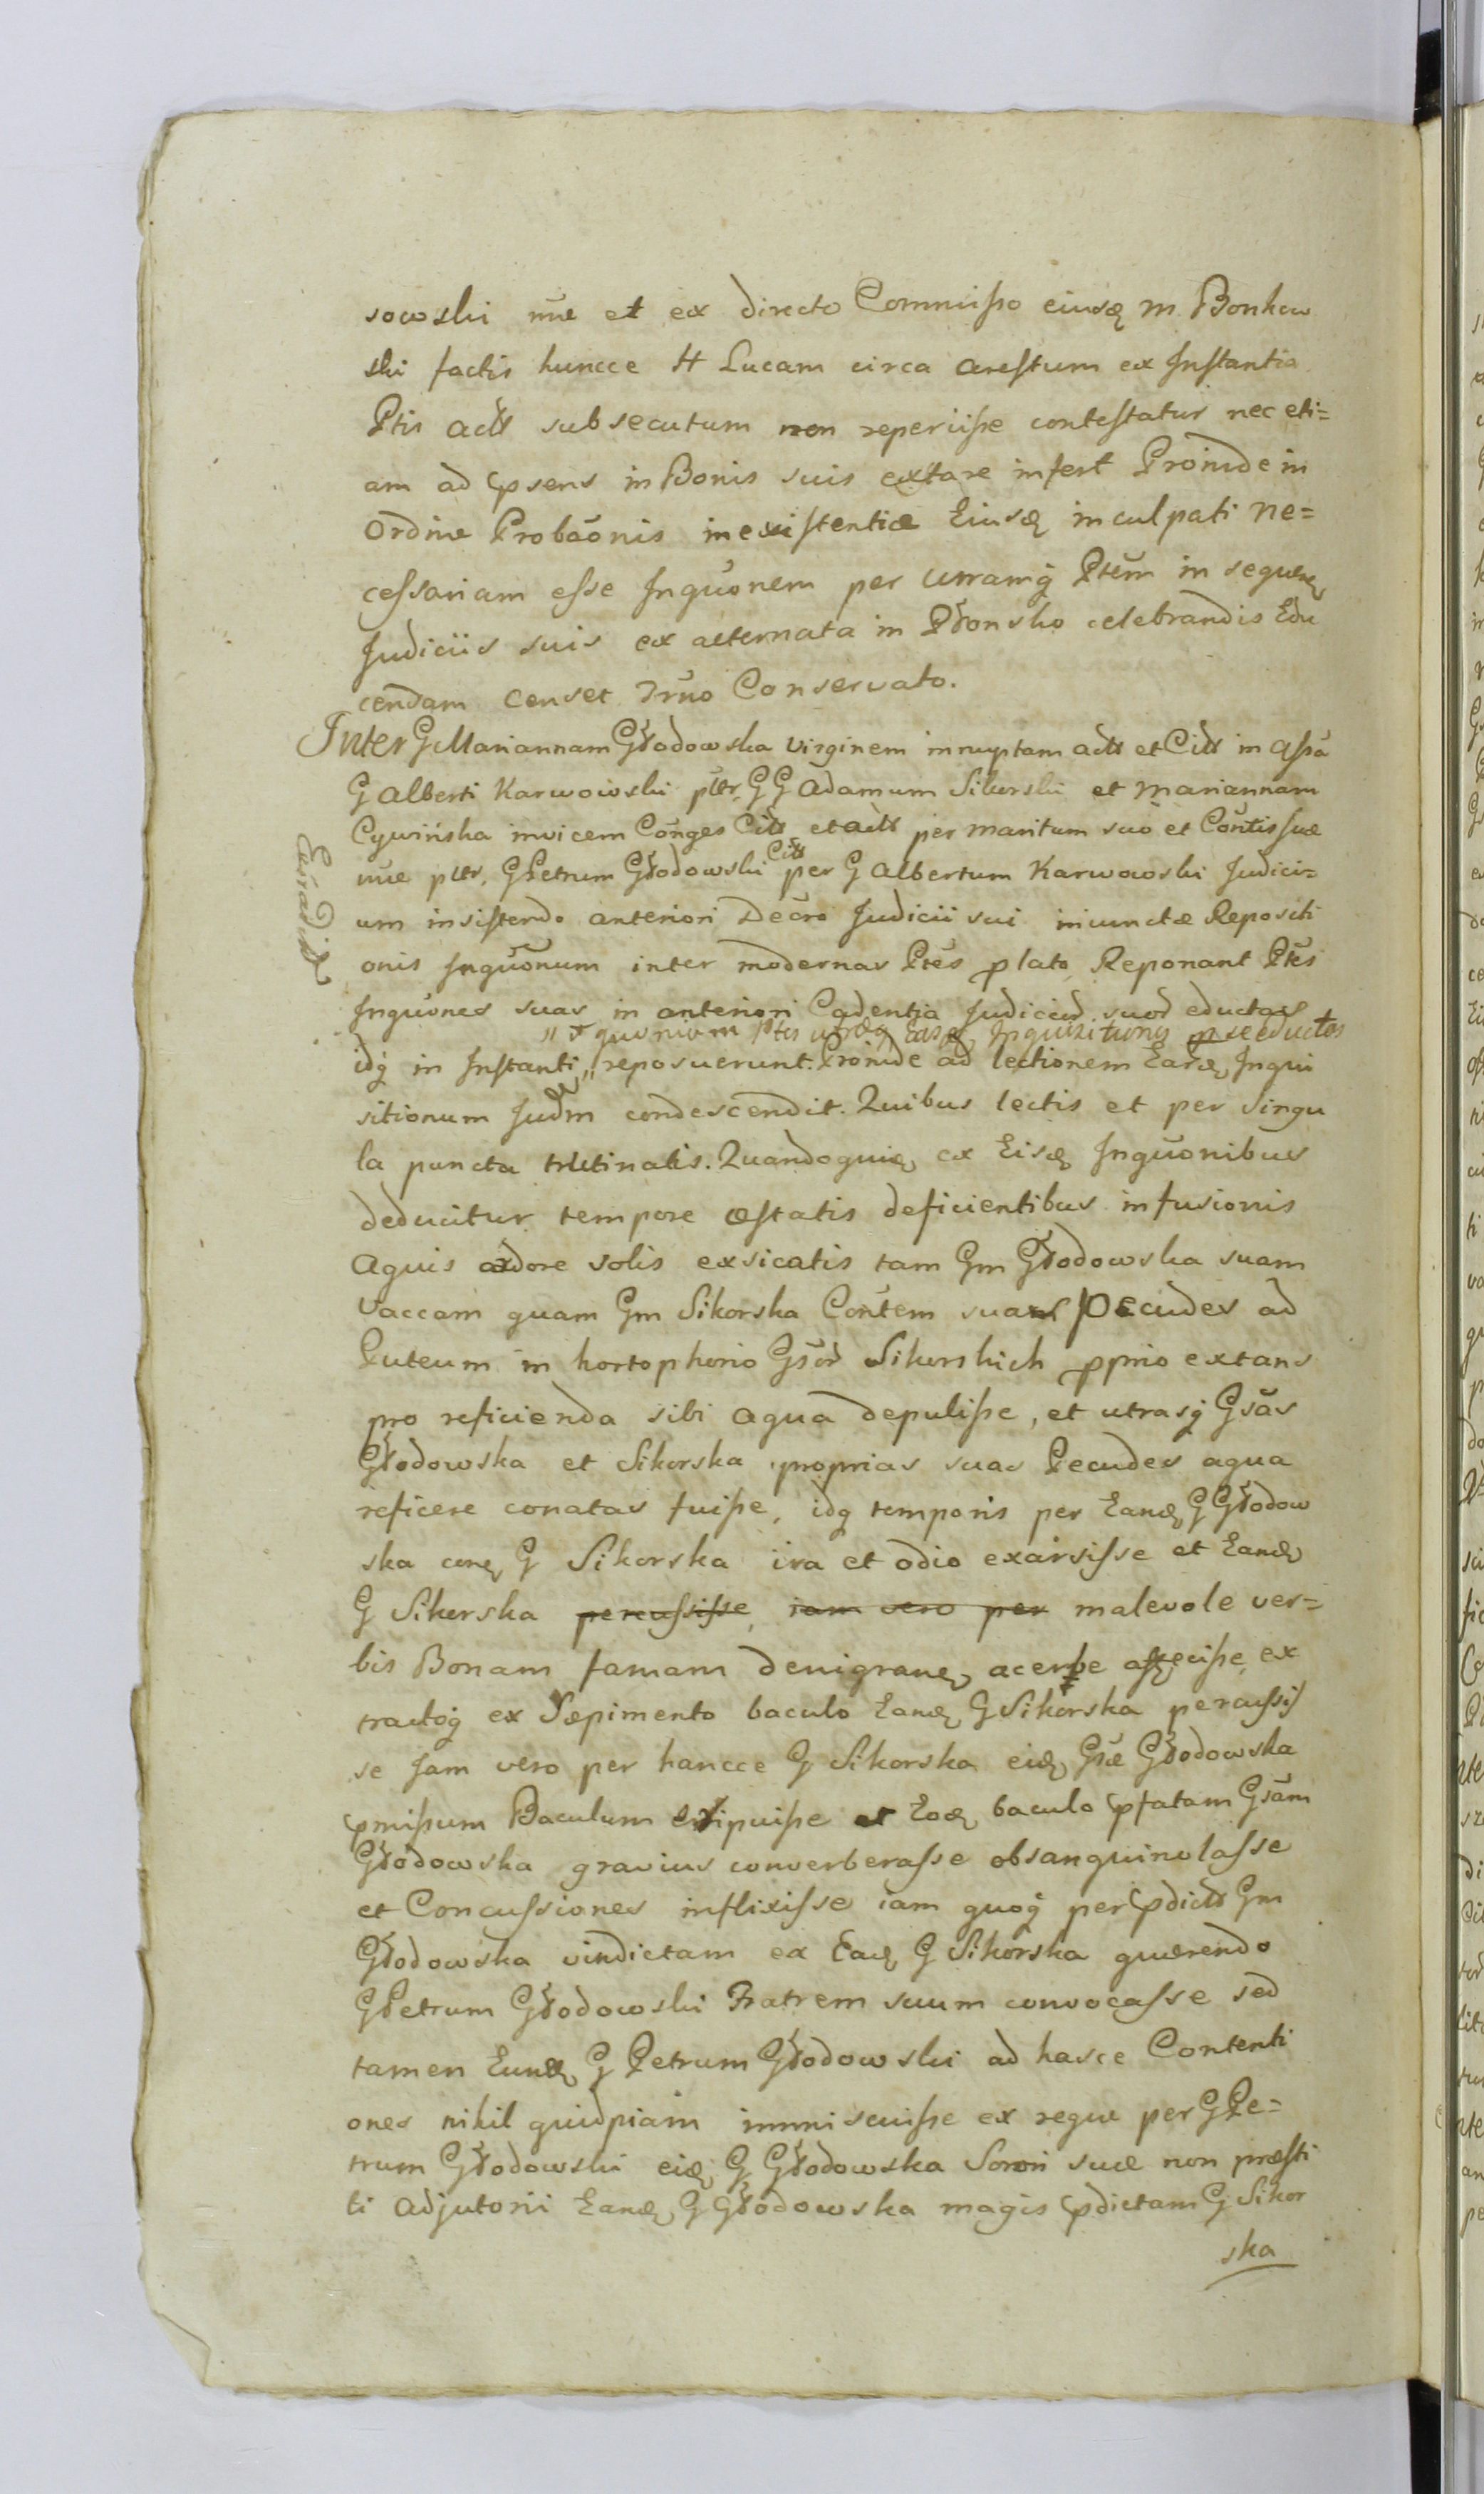 sowski nūe et ex directo Commisso eiusḑ m Bonkow
ski factis huncce H Lucam circa arestum ex Instantia
Ptis actt subsecutum non reperiisse contestatur nec eti=
am ad psens in Bonis suis extare infert Proinde in
ordine Probaōnis inexistentiæ Eiusḑ inculpati ne=
cessariam esse Inquōnem per utramq̄ Ptēm in sequen
Judiciis suis ex alternata in Płonsko celebrandis Edu
cendam censet Trūo Conservato.
Inter G Mariannam Głodowska virginem innuptam actt et Citt in assā
G Alberti Karwowski pttr, GG Adamum Sikorski et Mariannam
Cywińska invicem Cōnges Citt et actt per maritum suō et Cōntis suæ
nūe pttr, G Petrum Głodowski Citt per G Albertum Karwowski Judici=
um insistendo anteriori Decro Judicii sui iniunctæ Repositi
onis Inquōnum inter modernas Ptēs plato, Reponant Ptēs
Inquōnes suas in anteriori Cadentia Judiciod suod eductas
" & quoniam Ptes utræq Easd Inquisitiones p se eductas
idq̄ in Instanti " reposuerunt. Proinde ad lectionem Earḑ Inqui
sitionum Judm condescendit. Quibus lectis et per singu
la puncta trutinatis. Quandoquiḑ ex Eisḑ Inquōnibus
deducitur tempore æstatis deficientibus infusionis
aquis ardore solis exsicatis tam Gm Głodowska suam
vaccam quam Gm Sikorska Cōntem suas pecudes ad
Puteum in hortophorio Gsōr Sikorskich pprio extans
pro reficienda sibi aqua depulisse, et utrasq̄ Gsās
Głodowska et Sikorska proprias suas Pecudes aqua
reficere conatas fuisse, idq temporis per Eanḑ G Głodow
ska conḑ G Sikorska ira et odio exarsisse et Eanḑ
G Sikorska percussisse, iam vero per malevole ver=
bis Bonam famam denigranḑ acerbe affecisse, ex
tractoq̄ ex Sæpimento baculo Eanḑ G Sikorska percussis
se Jam vero per hancce G Sikorska eiḑ Gsæ Głodowska
pmissum Baculum eripuisse et Eoḑ baculo pfatam Gsām
Głodowska gravius converberasse obsanguinolasse
et Concussiones inflixisse iam quoq̄ per pdictt Gm
Głodowska vindictam ex Eaḑ G Sikorska quærendo
G Petrum Głodowski Fratrem suum convocasse sed
tamen Eunḑ G Petrum Głodowski ad hasce Contenti
ones nihil quidpiam immiscuisse ex reque per G Pe=
trum Głodowski eiḑ G Głodowska Sorori suæ non præsti
ti adjutorii Eanḑ G Głodowska magis pdictam G Sikor
ska